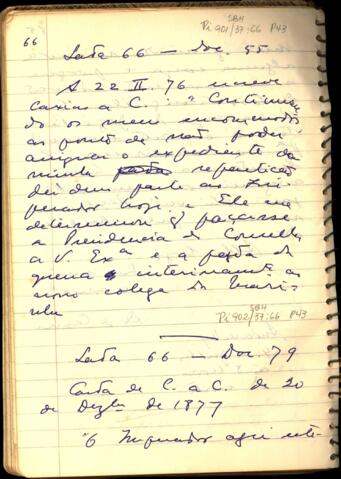 SBH
Pi 901/37:66 P43
66
Lata 66 — Doc. 55
A 22. II. 76 escreve
Caxias a C.: "Continuan
do os meus encommodos
ao ponto de não poder
o expediente da
minha repartição
dei dum parte ao Im-
perador hoje e Ele me
determinou q passasse
a Presidencia do Conselho
a V. Exª e a pasta da
guerra interinamente ao
nosso collega da Mari-
nha
SBH
Pi 902/37:66 P43
Lata 66 — Doc 79
Carta de C. a C. de 20
de Dezbro de 1877
"O Imperador aqui este-